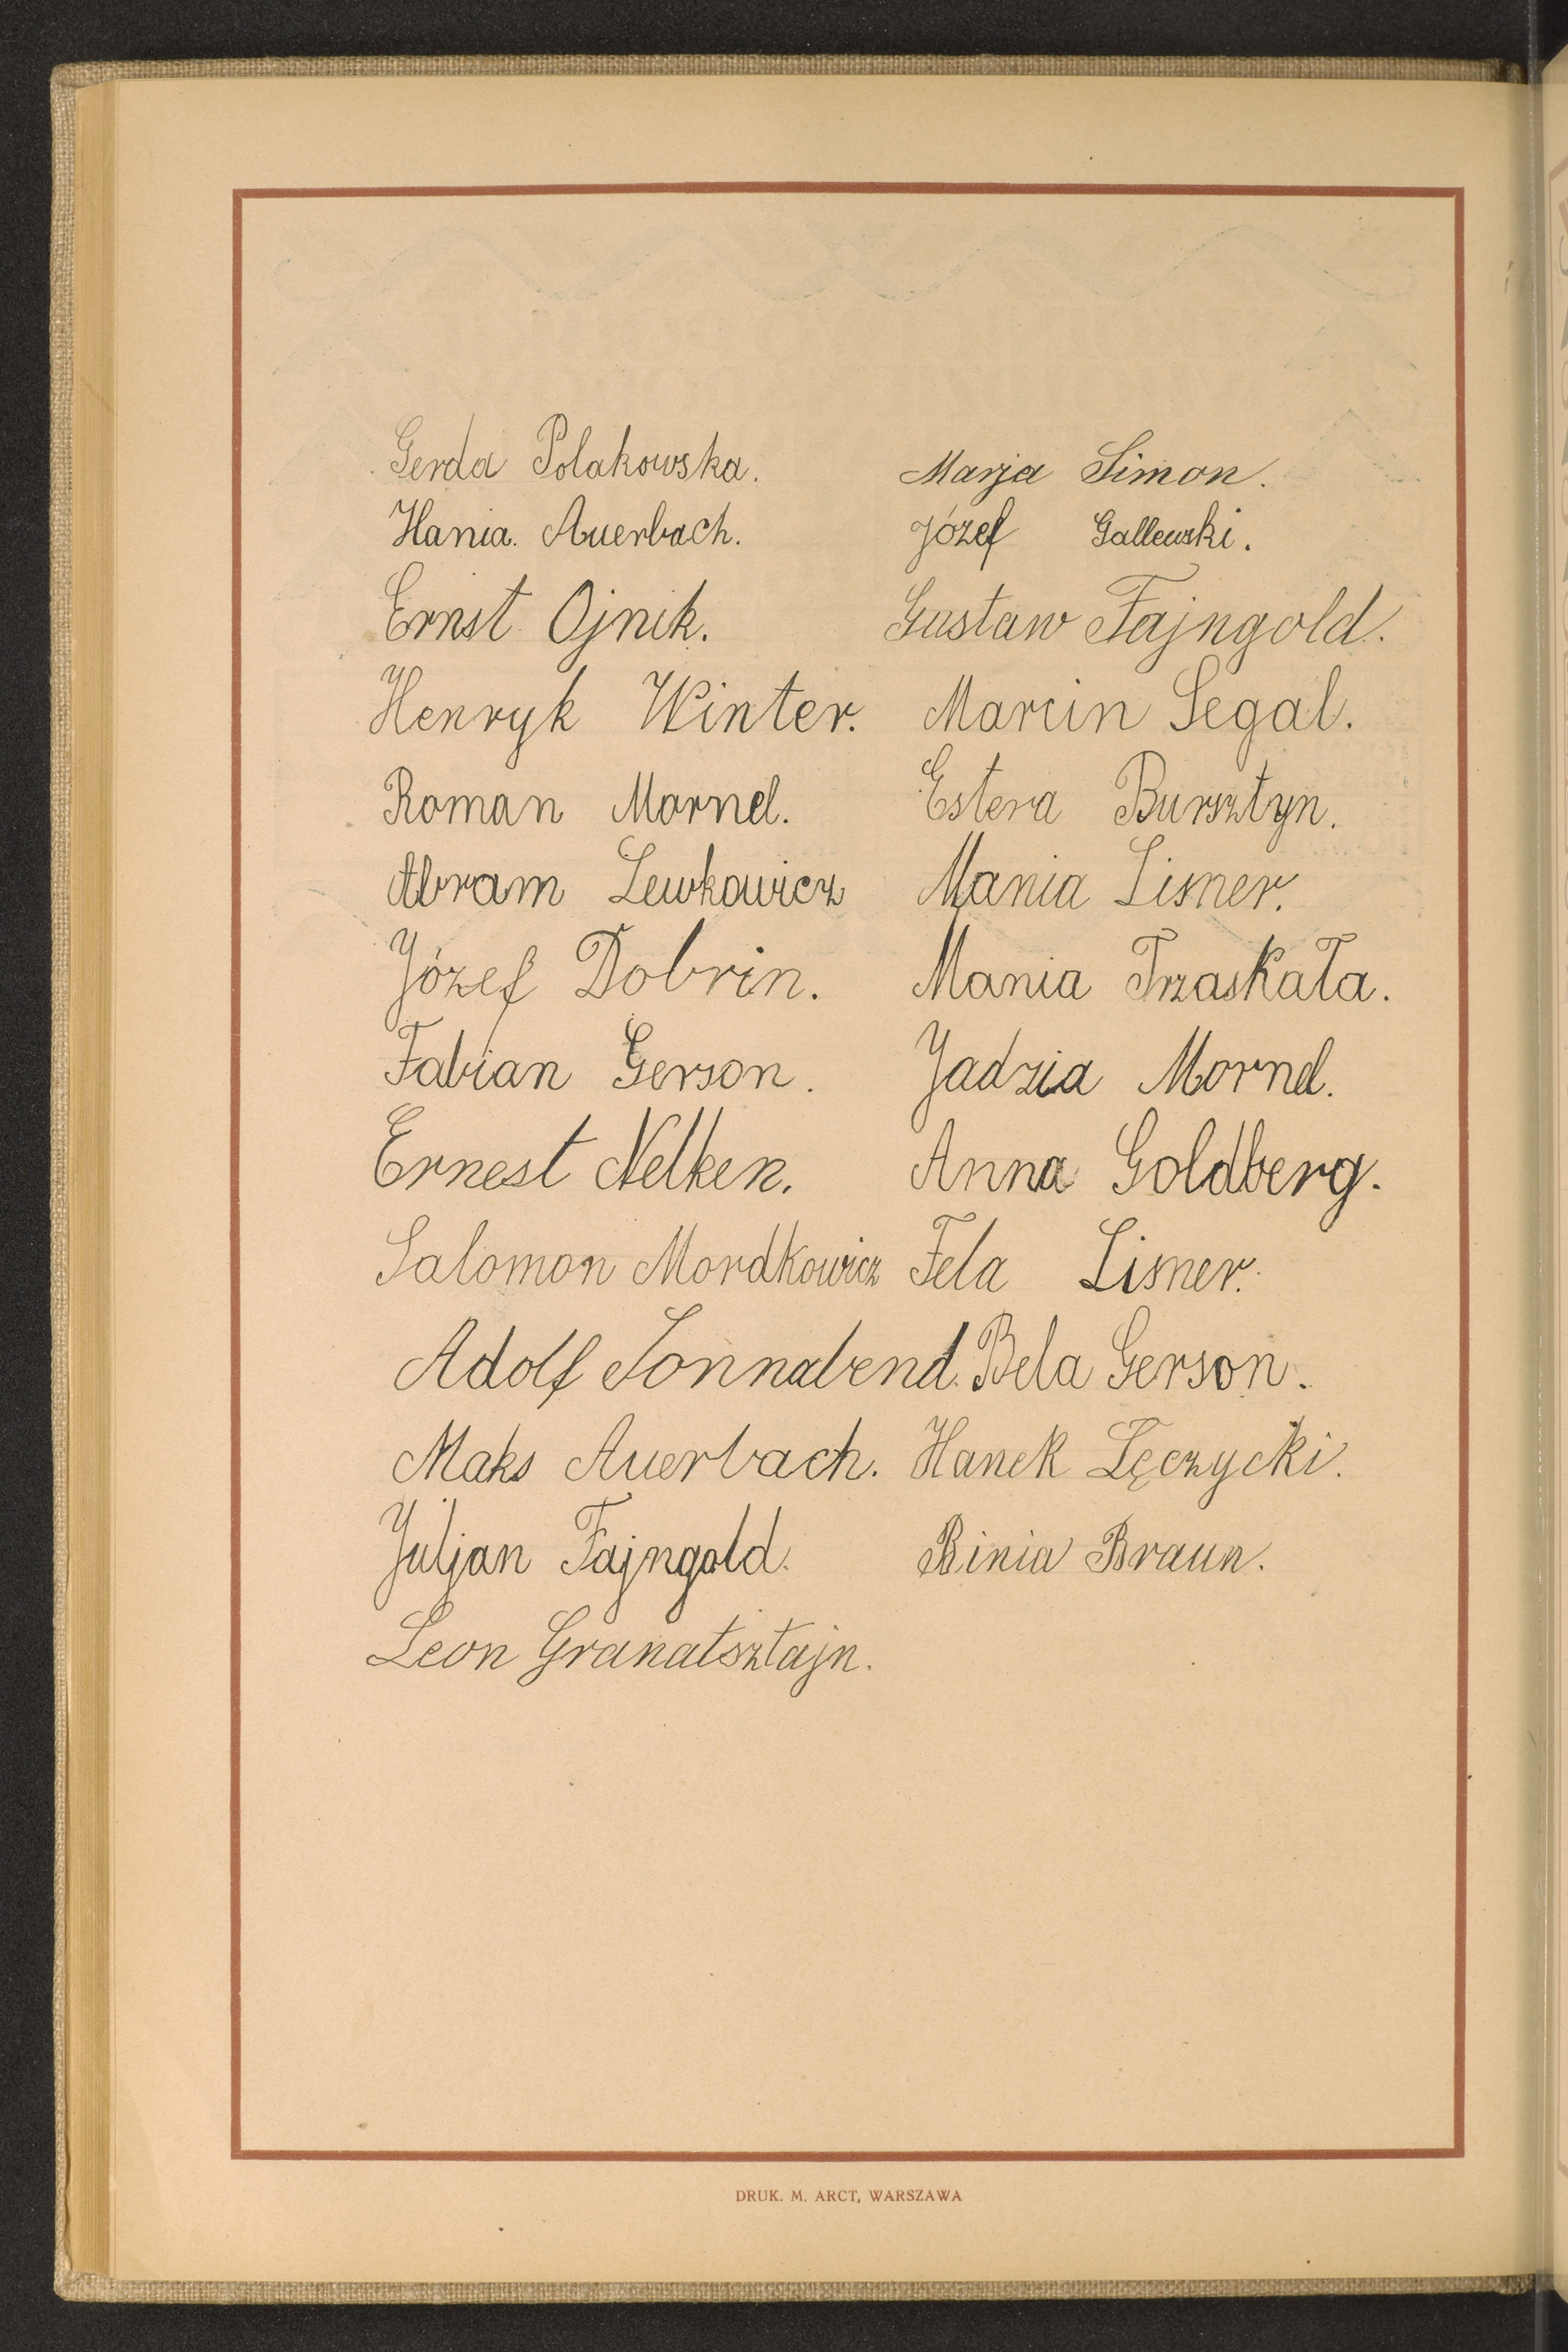 Gerda Polakowska.
Hania. Auerbach.
Ernst Ojnik.
Henryk Winter.
Roman Mornel.
Abram Lewkowicz
Józef Dobrin.
Fabian Gerson.
Ernest Nelken.
Salomon Mordkowicz
Adolf Sonnabend.
Maks Auerbach.
Juljan Fajngold.
Leon Granatsztajn.
Marja Simon.
Józef Gallewski.
Gustaw Fajngold.
Marcin Segal.
Estera Bursztyn.
Mania Lisner.
Mania Trzaskała.
Jadzia Mornel.
Anna Goldberg.
Fela Lisner.
Bela Gerson.
Hanek Łęczycki.
Binia Braun.
DRUK. M. ARCT, WARSZAWA